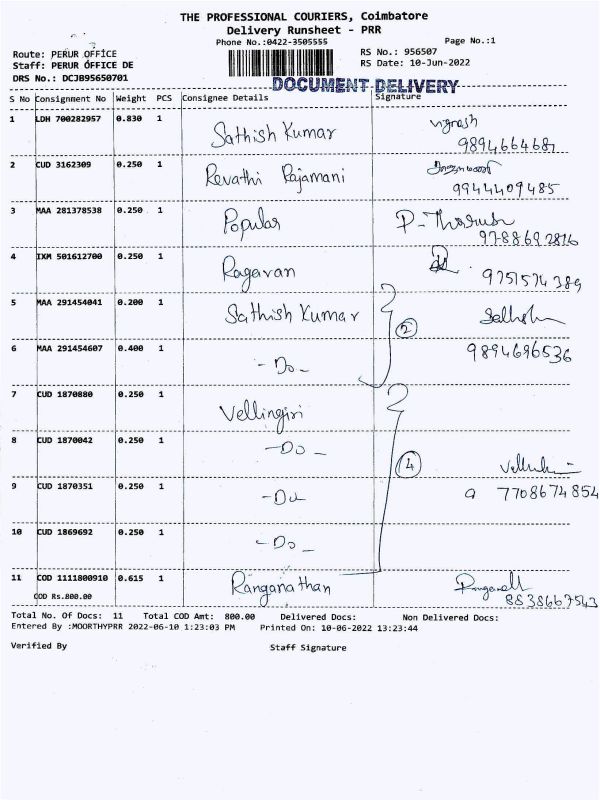 THE PROFESSIONAL COURIERS, Coimbatore
Delivery Runsheet - PRR
Phone No.:0422-3505555
Page No.:1
Route: PERUR OFFICE
RS No.: 956507
Staff: PERUR OFFICE DE
RS Date: 10-Jun-2022
DRS No.: DCJB95650701
DOCUMENT DELIVERY
S No Consignment No Weight PCS Consignee Details Signature
1 LDH 700282957 0.830 1 Sathish Kumar
9894664687
2 CUD 3162309 0.250 1 Revathi Rajamani
9944409485
3 MAA 281378538 0.250 1 Popular
9788692816
4 IXM 501612700 0.250 1 Ragavan
9751574389
5 MAA 291454041 0.200 1 Sathish Kumar
2
6 MAA 291454607 0.400 1 -Do-
9894696536
7 CUD 1870880 0.250 1 Vellingiri
8 CUD 1870042 0.250 1 -Do-
4
9 CUD 1870351 0.250 1 -Do
7708674854
10 CUD 1869692 0.250 1 -Do-
11 COD 1111800910 0.615 1 Ranganathan
COD Rs.800.00
8838667543
Total No. Of Docs: 11 Total COD Amt: 800.00 Delivered Docs: Non Delivered Docs:
Entered By :MOORTHYPRR 2022-06-10 1:23:03 PM Printed On: 10-06-2022 13:23:44
Verified By Staff Signature